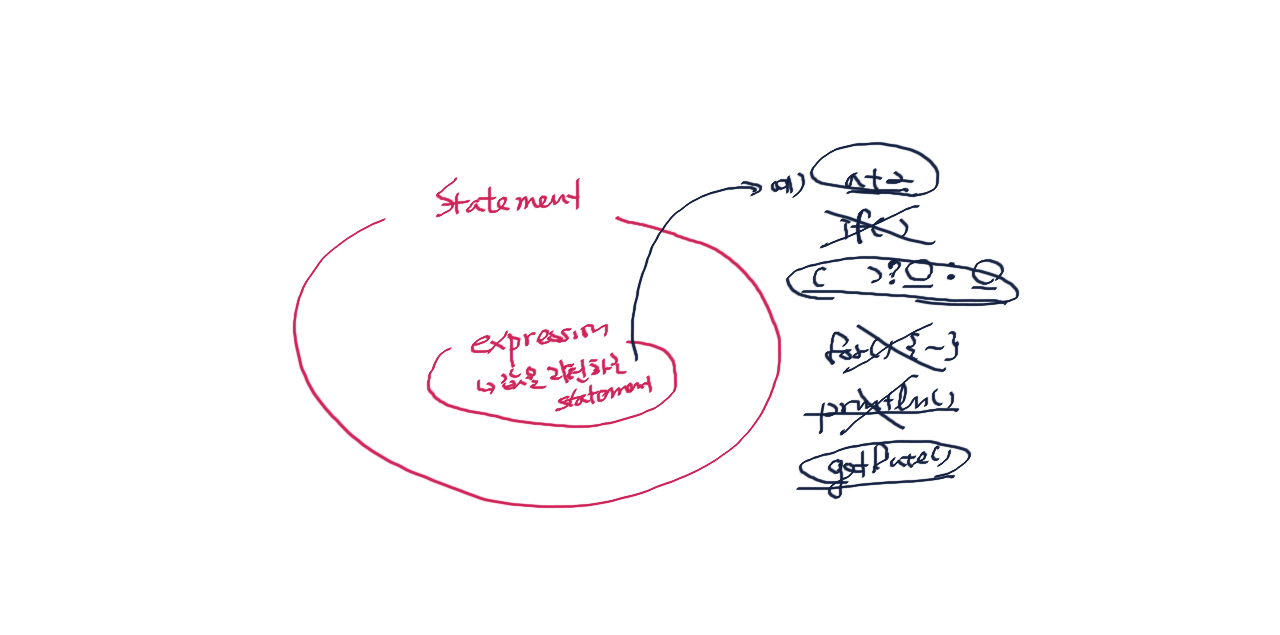 Statement
expression
↳ 값을 리턴하는
statement
예) a+2
if()
( )? ○ : ○
for() {~}
println()
getDate()